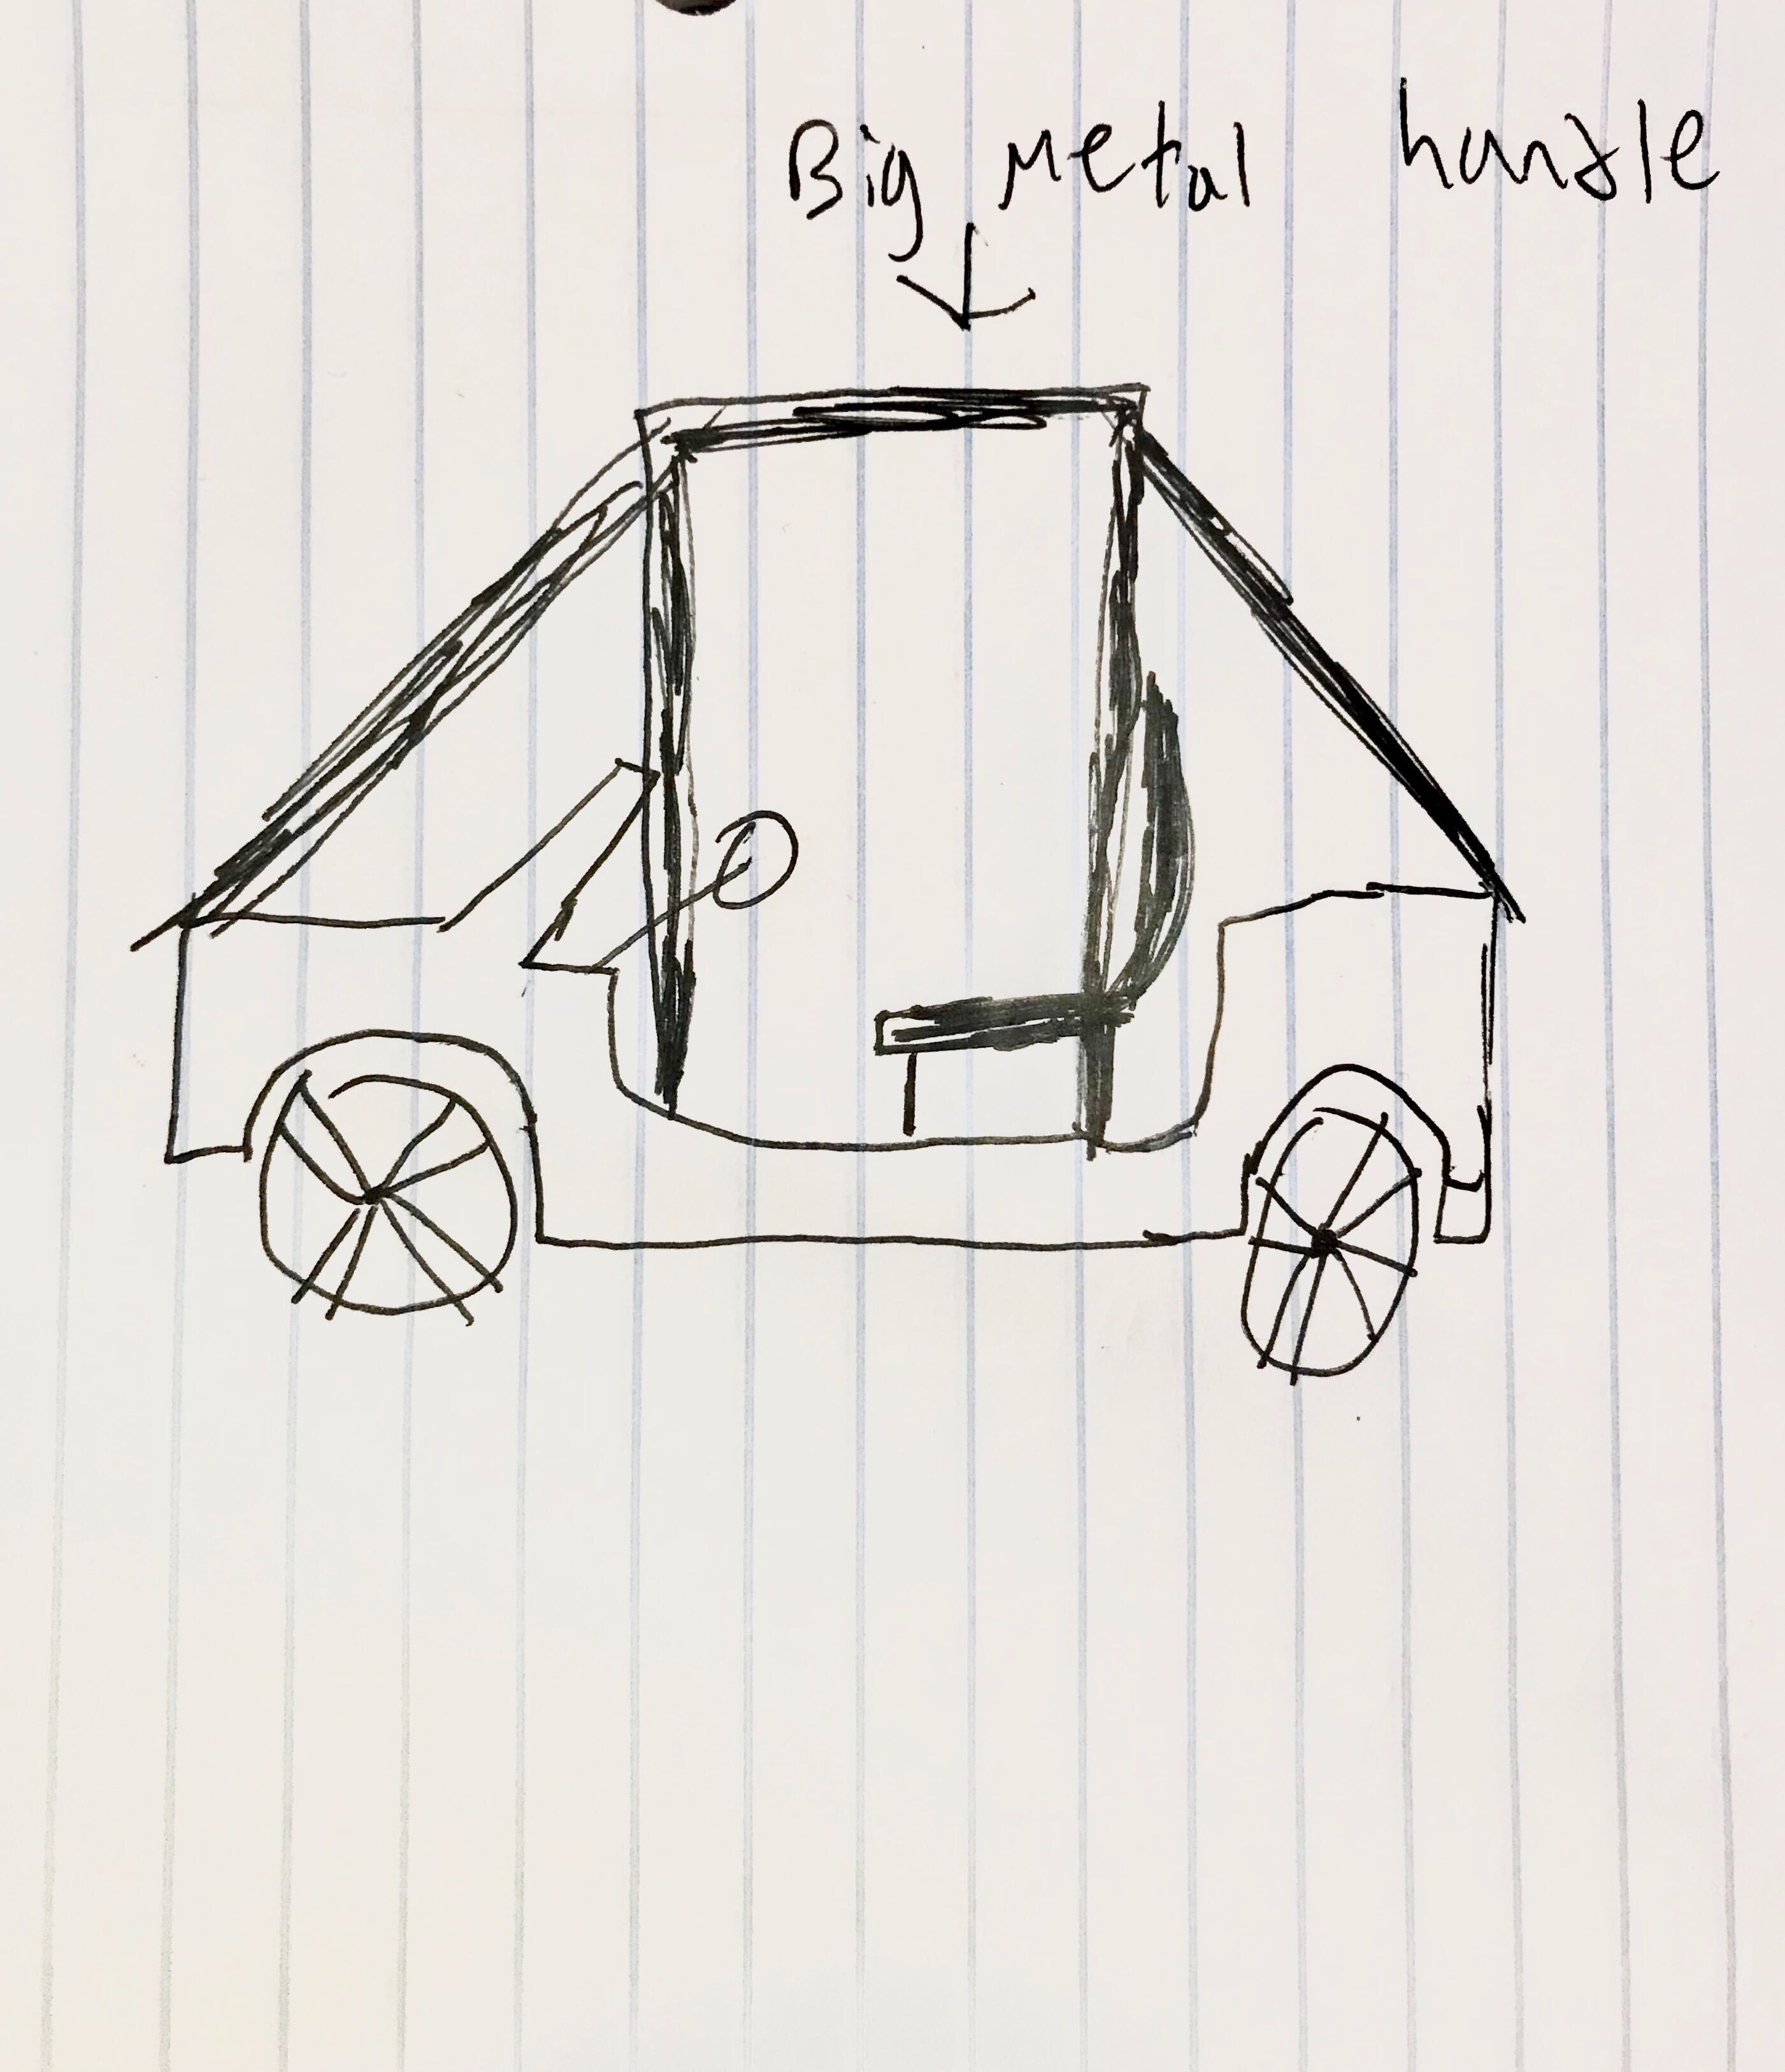 Big metal handle